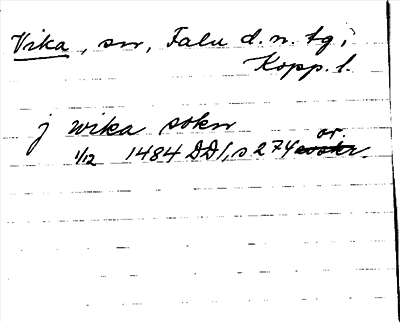 Vika, sn, Falu d. n. tg;
Kopp. l.
j wika sokn
1/12 1484 DD1, s 274 or.